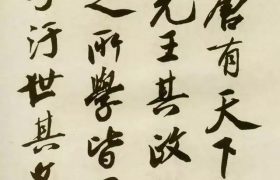 唐有天下
先王其政
之所學皆
于汙世其